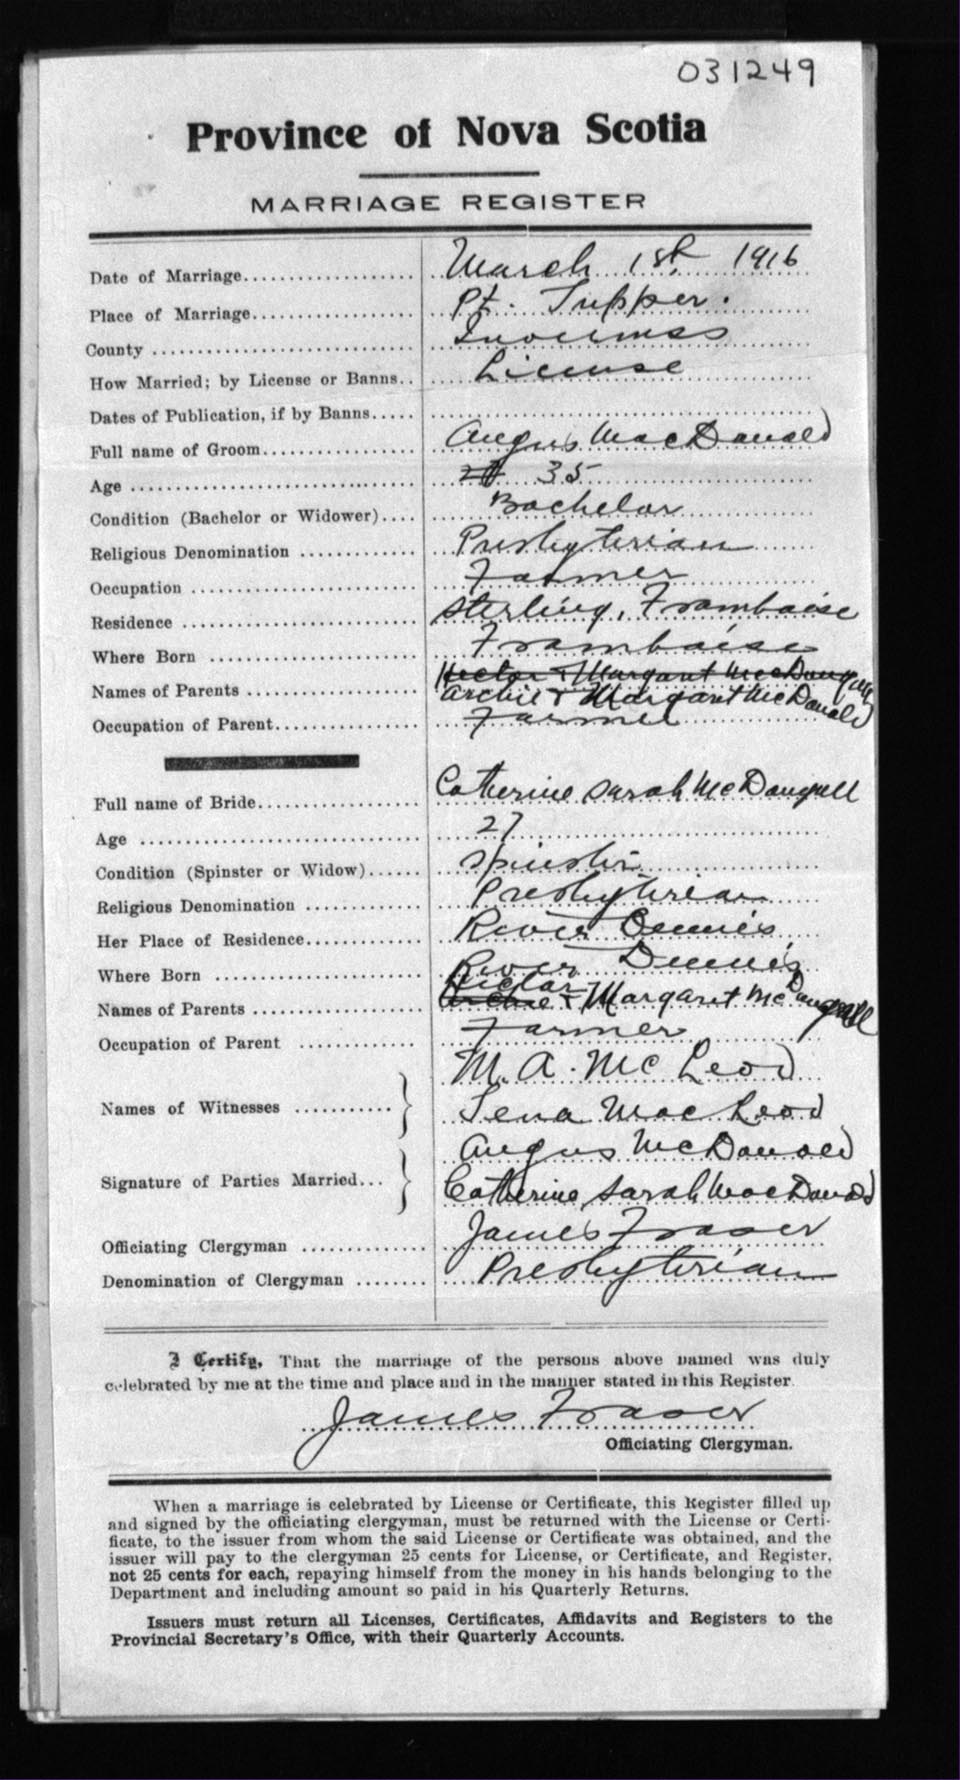 031249
Province of Nova Scotia
MARRIAGE REGISTER
Date of Marriage.................... March 1st. 1916
Place of Marriage.................... Pt. Tupper.
County .................... Inverness
How Married; by License or Banns.. License
Dates of Publication, if by Banns.....
Full name of Groom.................... Angus MacDonald
Age .................... 35
Condition (Bachelor or Widower).... Bachelor
Religious Denomination ............. Presbyterian
Occupation .................... Farmer
Residence .................... Sterling, Framboise
Where Born .................... Framboise
Hector & Margaret McDougall
Names of Parents .................... Archie & Margaret McDonald
Occupation of Parent.................... Farmer
Full name of Bride.................... Catherine Sarah McDougall
Age .................... 27
Condition (Spinster or Widow)...... Spinster
Religious Denomination ............. Presbyterian
Her Place of Residence............. River Dennis
Where Born .................... River Dennis
Hector
Names of Parents .................... Archie & Margaret McDougall
Occupation of Parent ............. Farmer
M. A. McLeod
Names of Witnesses ...........
Tena MacLeod
Angus McDonald
Signature of Parties Married...
Catherine Sarah MacDonald
Officiating Clergyman ............. James Fraser
Denomination of Clergyman ........ Presbyterian
I Certify, That the marriage of the persons above named was duly
celebrated by me at the time and place and in the manner stated in this Register.
James Fraser
Officiating Clergyman.
When a marriage is celebrated by License or Certificate, this Register filled up
and signed by the officiating clergyman, must be returned with the License or Certi-
ficate, to the issuer from whom the said License or Certificate was obtained, and the
issuer will pay to the clergyman 25 cents for License, or Certificate, and Register,
not 25 cents for each, repaying himself from the money in his hands belonging to the
Department and including amount so paid in his Quarterly Returns.
Issuers must return all Licenses, Certificates, Affidavits and Registers to the
Provincial Secretary's Office, with their Quarterly Accounts.